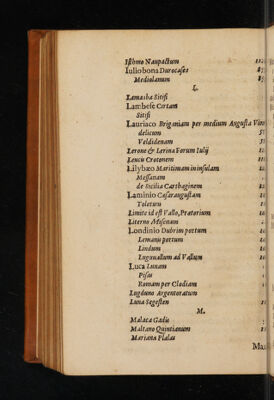 Isthmo Naupactum
Iuliobona Durocases
Mediolanum
L.
Lamasba Sitifi
Lambese Cirtam
Sitifi
Lauriaco Briganiam per medium Augusta Vin
delicum
Veldidenam
Lerone & Lerina Forum Iulij
Leucis Crotonem
Lilybæo Maritimam in insulam
Messanam
de Sicilia Carthaginem
Laminio Cæsaraugustam
Toletum
Limite id est Vallo, Prætorium
Literno Misenum
Londinio Dubrim portum
Lemanis portum
Lindum
Luguuallum ad Vallum
Luca Lunam
Pisas
Romam per Clodiam
Lugduno Argentoratum
Luna Segesten
M.
Malaca Gadis
Maltano Quintianum
Mariana Plalas